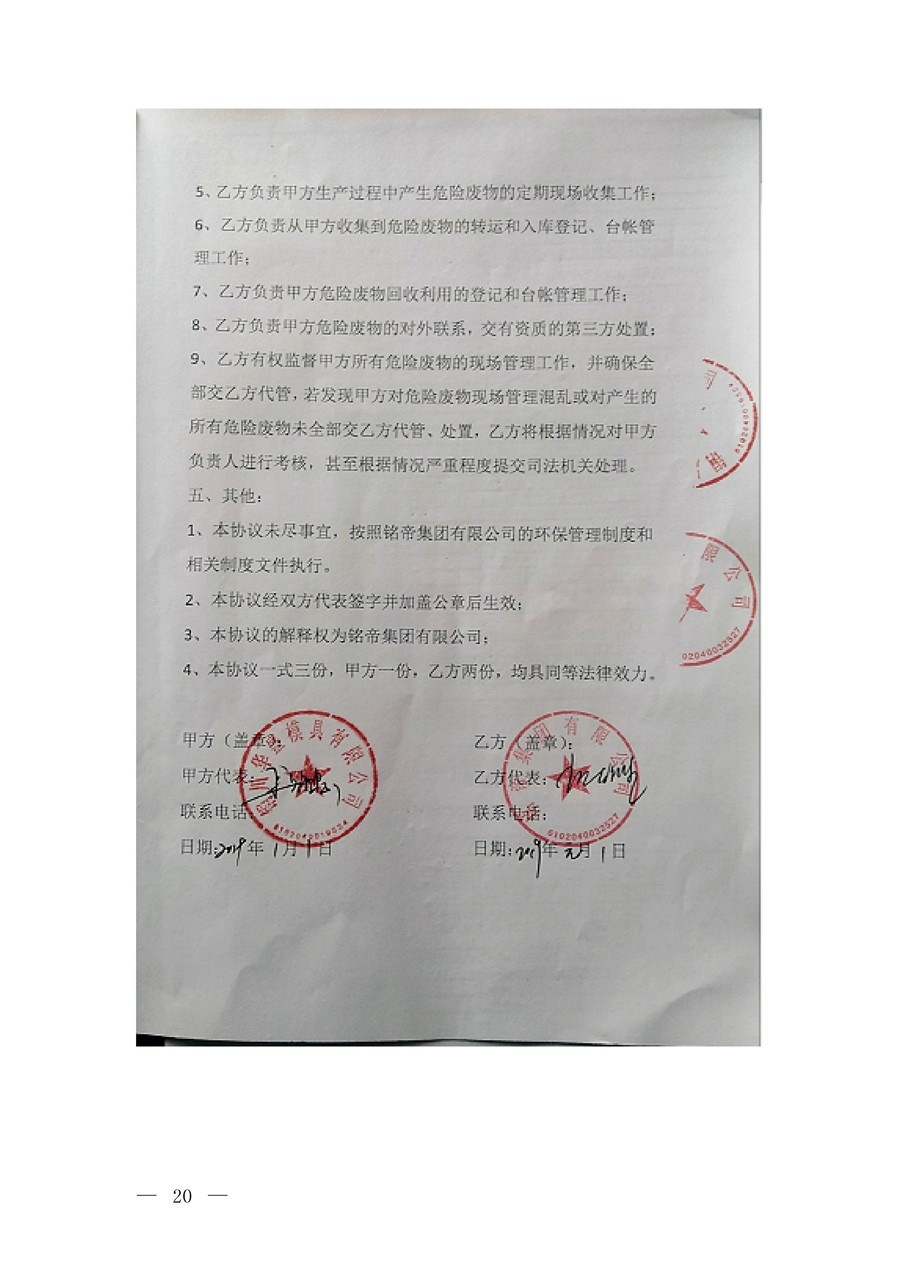 5、乙方负责甲方生产过程中产生危险废物的定期现场收集工作;
6、乙方负责从甲方收集到危险废物的转运和入库登记、台帐管
理工作;
7、乙方负责甲方危险废物回收利用的登记和台帐管理工作;
8、乙方负责甲方危险废物的对外联系，交有资质的第三方处置;
9、乙方有权监督甲方所有危险废物的现场管理工作，并确保全
部交乙方代管，若发现甲方对危险废物现场管理混乱或对产生的
所有危险废物未全部交乙方代管、处置，乙方将根据情况对甲方
负责人进行考核，甚至根据情况严重程度提交司法机关处理。
五、其他:
1、本协议未尽事宜，按照铭帝集团有限公司的环保管理制度和
相关制度文件执行。
2、本协议经双方代表签字并加盖公章后生效;
3、本协议的解释权为铭帝集团有限公司;
4、本协议一式三份，甲方一份，乙方两份，均具同等法律效力。
限公司
02040032527
甲方（盖章）:
乙方（盖章）:
甲方代表:
乙方代表:
联系电话:
联系电话:
日期:2019年1月1日
日期:2019年元月1日
模具有限公司
集团有限公司
6102040032527
— 20 —